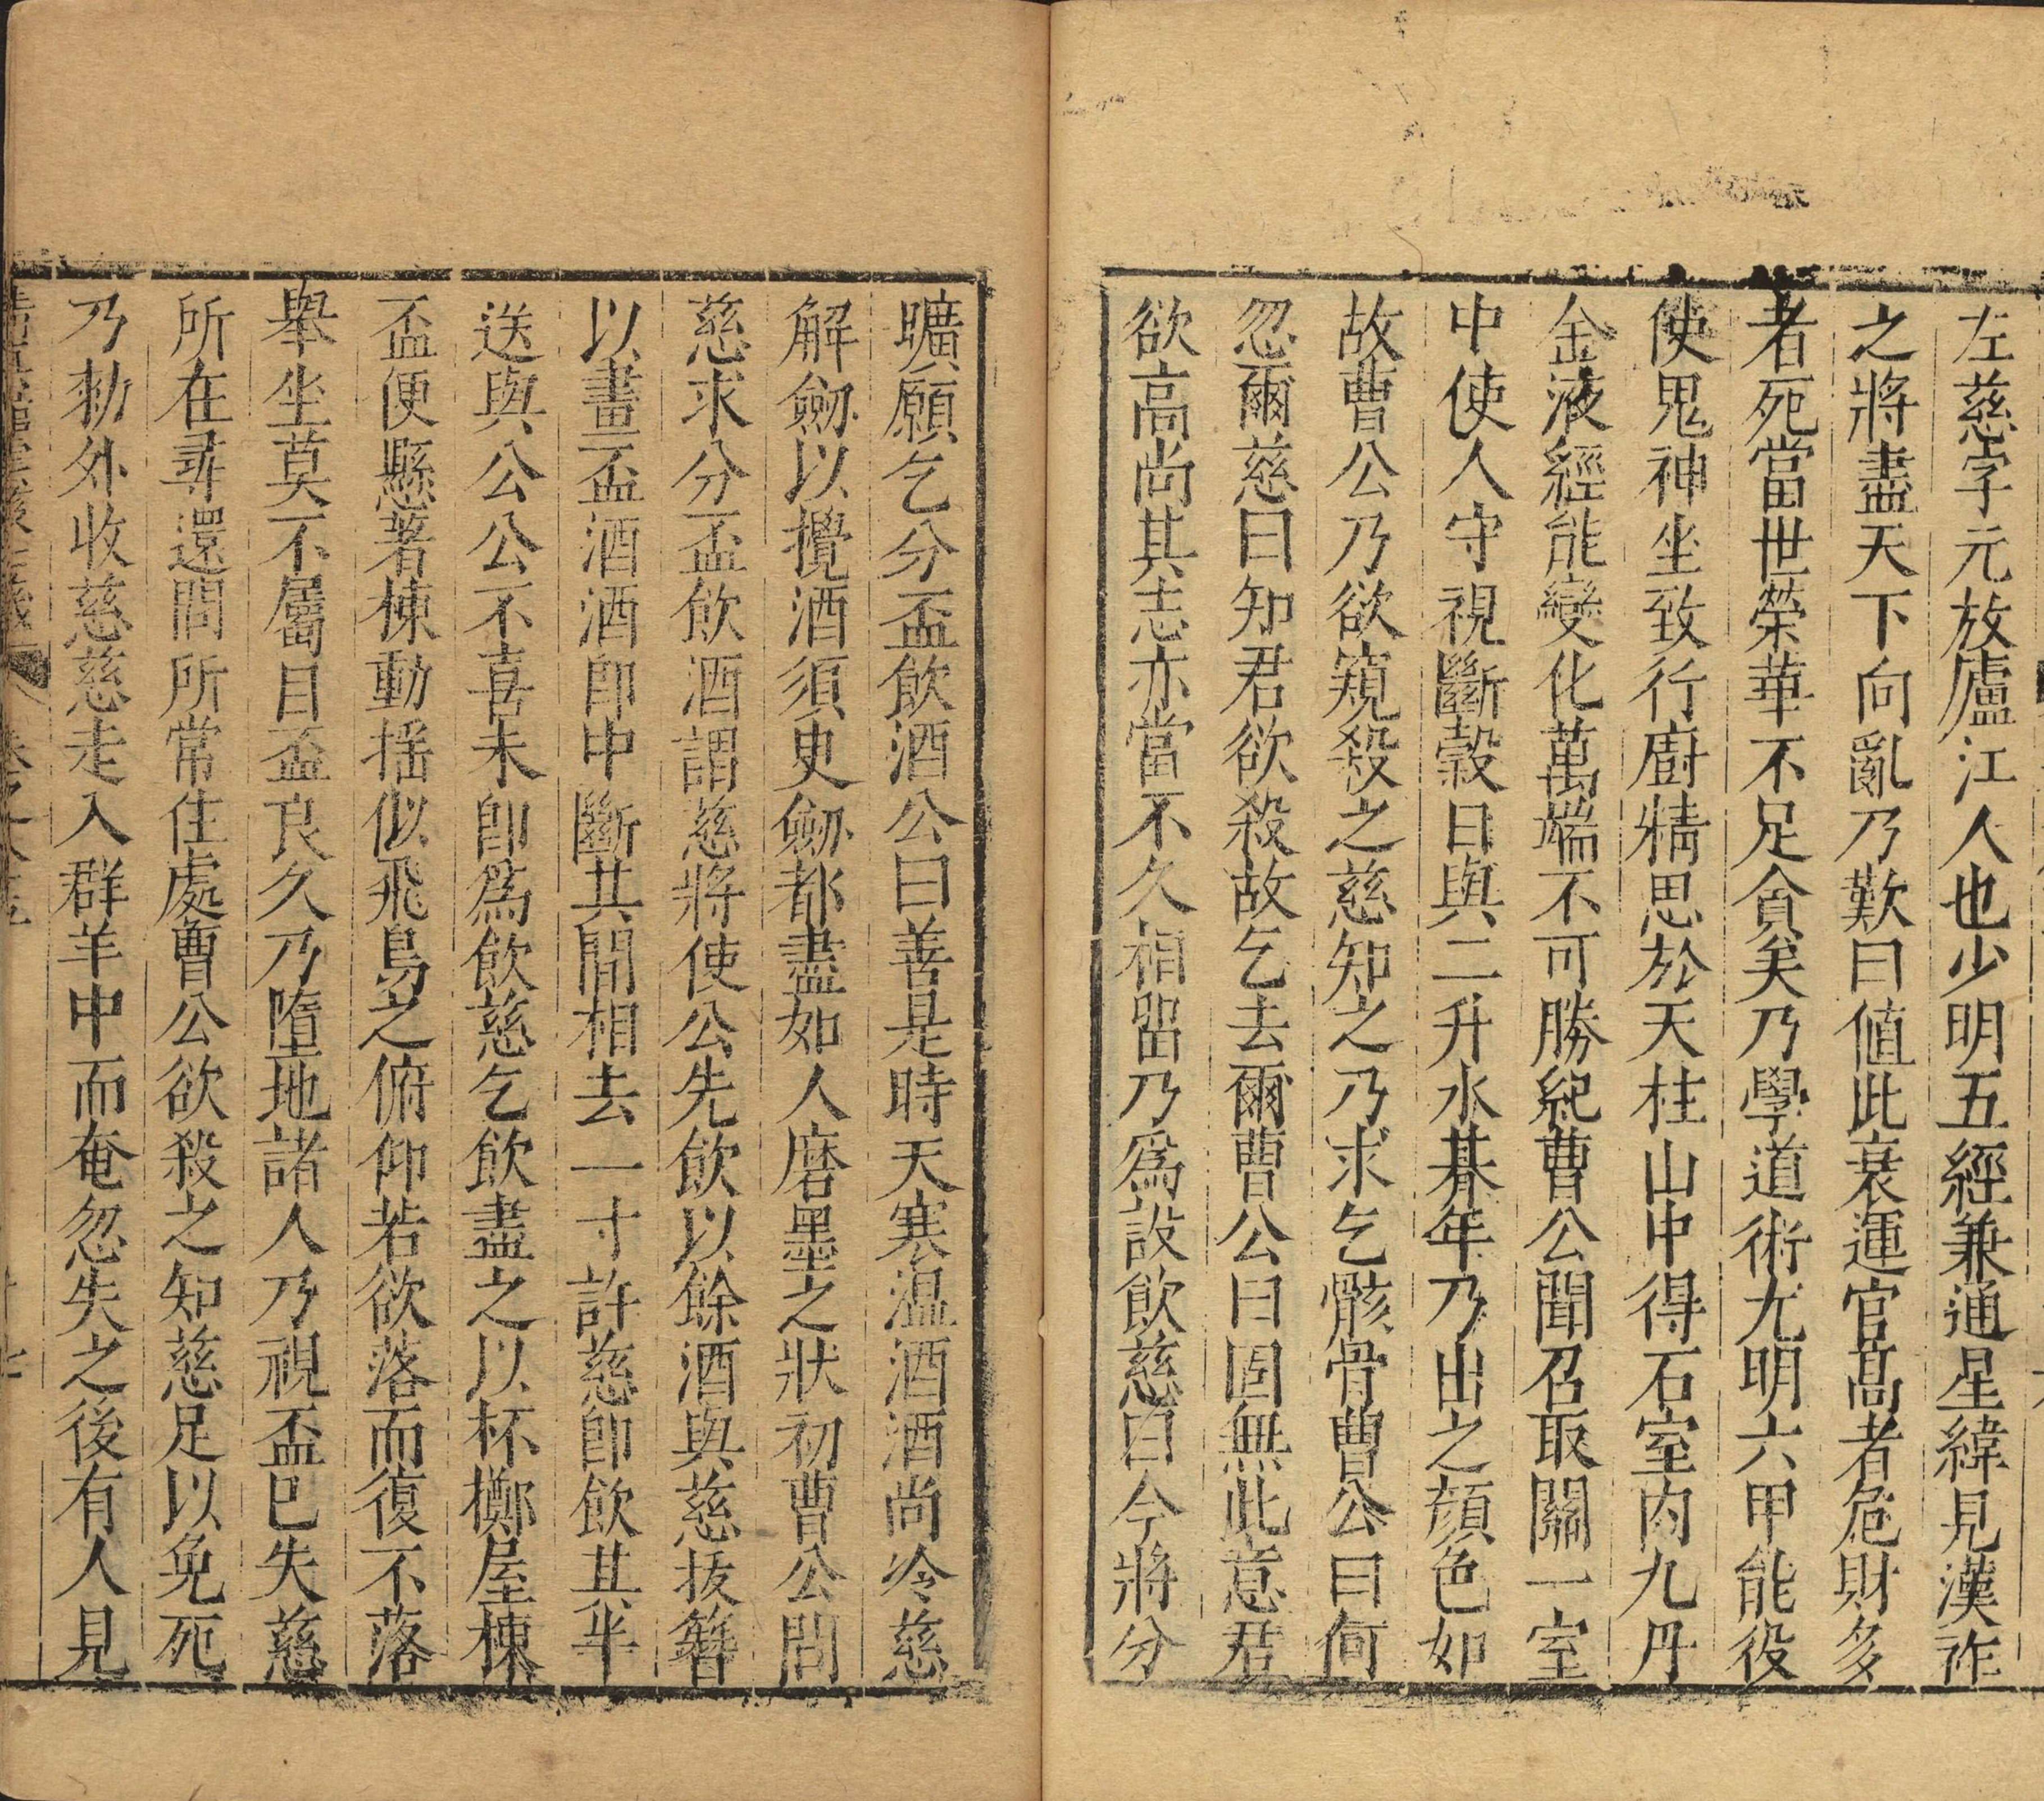 左慈字元放廬江人也少明五經兼通星緯見漢祚
之將盡天下向亂乃歎曰値此衰運官高者危財多
者死當世榮華不足貪矣乃學道術尤明六甲能役
使鬼神坐致行廚精思於天柱山中得石室内九丹
金液經能變化萬端不可勝紀曹公聞召取關一室
中使人守視斷穀日與二升水朞年乃出之顔色如
故曹公乃欲窺殺之慈知之乃求乞骸骨曹公曰何
忽爾慈曰知君欲殺故乞去爾曹公曰固無此意君
欲高尚其志亦當不久相留乃爲設飲慈曰今將分
曠願乞分盃飲酒公曰善是時天寒溫酒酒尚冷慈
解劒以攪酒須臾劒都盡如人磨墨之狀初曹公問
慈求分盃飲酒謂慈將使公先飲以餘酒與慈拔簪
以畫盃酒酒即中斷其間相去一寸許慈即飲其半
送與公公不喜未即爲飲慈乞飲盡之以杯擲屋棟
盃便懸著棟動揺似飛鳥之俯仰若欲落而復不落
舉坐莫不屬目盃良久乃墮地諸人乃視盃巳失慈
所在尋還問所常住處曹公欲殺之知慈足以免死
乃勑外收慈慈走入群羊中而奄忽失之後有人見